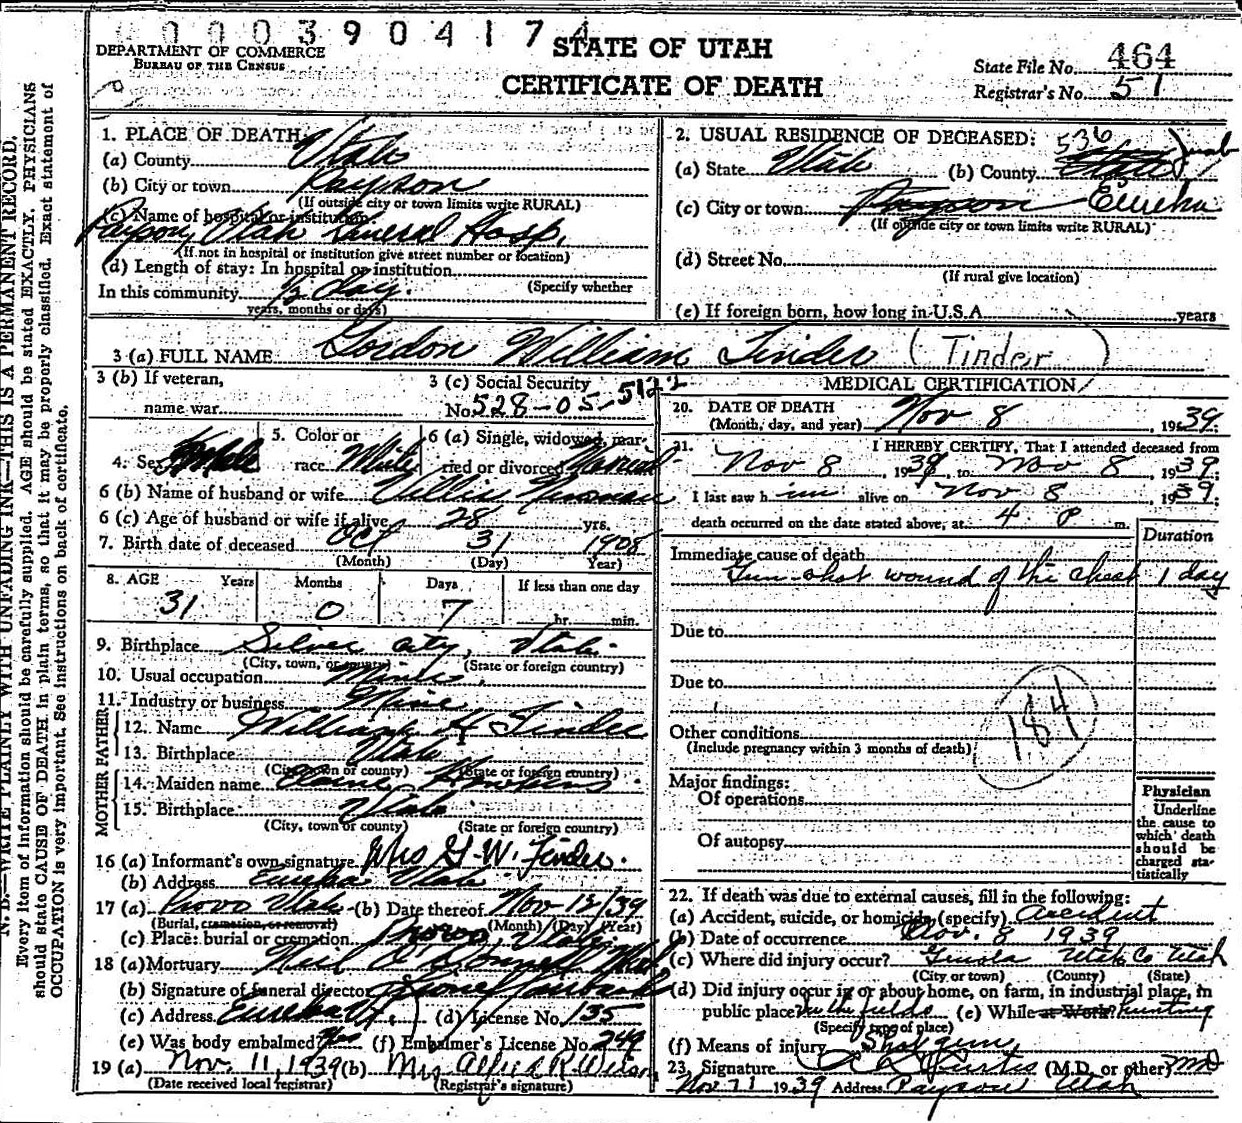 0003904174
DEPARTMENT OF COMMERCE
BUREAU OF THE CENSUS
STATE OF UTAH
CERTIFICATE OF DEATH
State File No. 464
Registrar's No. 51
N. B.—WRITE PLAINLY WITH UNFADING INK—THIS IS A PERMANENT RECORD.
Every item of information should be carefully supplied. AGE should be stated EXACTLY. PHYSICIANS
should state CAUSE OF DEATH in plain terms, so that it may be properly classified. Exact statement of
OCCUPATION is very important. See instructions on back of certificate.
1. PLACE OF DEATH
(a) County Utah
(b) City or town Payson
(If outside city or town limits write RURAL)
(c) Name of hospital or institution:
Payson, Utah General Hosp.
(If not in hospital or institution give street number or location)
(d) Length of stay: In hospital or institution
(Specify whether
In this community ½ day.
years, months or days)
2. USUAL RESIDENCE OF DECEASED: 536
(a) State Utah (b) County Utah Juab
(c) City or town Payson Eureka
(If outside city or town limits write RURAL)
(d) Street No.
(If rural give location)
(e) If foreign born, how long in U.S.A. years
3 (a) FULL NAME Gordon William Tinder (Tinder)
3 (b) If veteran,
name war
3 (c) Social Security
No. 528-05-5122
4. Sex Male
5. Color or
race White
6 (a) Single, widowed, mar-
ried or divorced Married
6 (b) Name of husband or wife
6 (c) Age of husband or wife if alive 28 yrs.
7. Birth date of deceased Oct 31 1908
(Month) (Day) Year)
8. AGE Years Months Days If less than one day
31 0 7 hr. min.
9. Birthplace Silver City, Utah
(City, town, or county) (State or foreign country)
10. Usual occupation Miner
11. Industry or business Mine
FATHER
12. Name William H Tinder
13. Birthplace Utah
(City, town or county) (State or foreign country)
MOTHER
14. Maiden name Hopkins
15. Birthplace Utah
(City, town or county) (State or foreign country)
16 (a) Informant's own signature Mrs G. W. Tinder.
(b) Address Eureka Utah
17 (a) Provo Utah (b) Date thereof Nov 12/39
(Burial, cremation, or removal) (Month) (Day) (Year)
(c) Place: burial or cremation Provo, Utah
18 (a) Mortuary
(b) Signature of funeral director
(c) Address Eureka Ut. (d) License No. 135
(e) Was body embalmed? Yes (f) Embalmer's License No. 249
19 (a) Nov. 11, 1939 (b) Mrs Alfred R. Wilson
(Date received local registrar) (Registrar's signature)
MEDICAL CERTIFICATION
20. DATE OF DEATH
(Month, day, and year) Nov 8, 1939.
21. I HEREBY CERTIFY, That I attended deceased from
Nov 8, 1939 to Nov 8, 1939
I last saw him alive on Nov 8, 1939
death occurred on the date stated above, at 4 P m.
Duration
Immediate cause of death
Gun-shot wound of the chest 1 day
Due to
Due to
Other conditions
(Include pregnancy within 3 months of death)
184
Major findings:
Of operations
Of autopsy
Physician
Underline
the cause to
which death
should be
charged sta-
tistically
22. If death was due to external causes, fill in the following:
(a) Accident, suicide, or homicide (specify) Accident
(b) Date of occurrence Nov. 8 1939
(c) Where did injury occur? Genola Utah Co Utah
(City or town) (County) (State)
(d) Did injury occur in or about home, on farm, in industrial place, in
public place In the fields (e) While at Work? hunting
(Specify type of place)
(f) Means of injury Shot gun
23. Signature Curtis (M.D. or other) MD
Nov 11 1939 Address Payson Utah